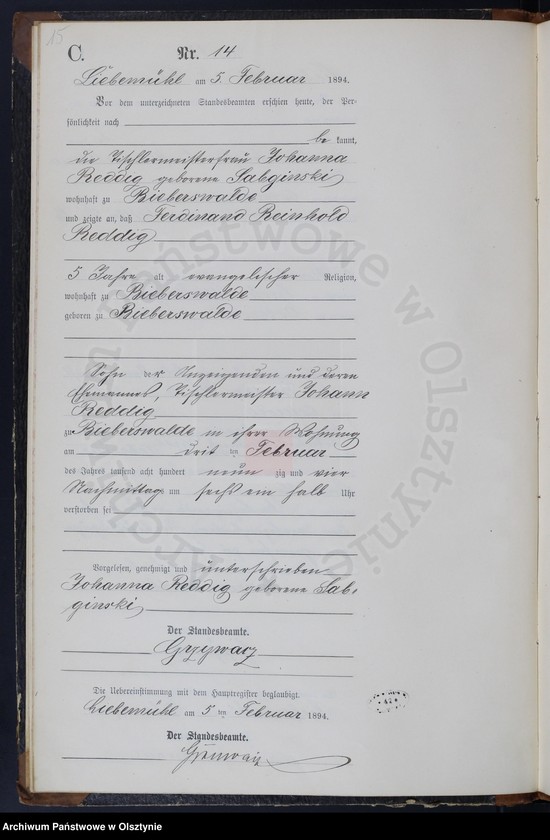 15
C.
Nr. 14
Liebemühl am 5. Februar 1894.
Vor dem unterzeichneten Standesbeamten erschien heute, der Per-
sönlichkeit nach
be kannt,
die Tischlermeisterfrau Johanna
Reddig geborene Sabginski
wohnhaft zu Bieberswalde
und zeigte an, daß Ferdinand Reinhold
Reddig
5 Jahre alt evangelischer Religion,
wohnhaft zu Bieberswalde
geboren zu Bieberswalde
Sohn der Anzeigenden und deren
Ehemannes, Tischlermeister Johann
Reddig
zu Bieberswalde in ihrer Wohnung
am drit ten Februar
des Jahres tausend acht hundert neun zig und vier
Nachmittag um sechs ein halb Uhr
verstorben sei
Vorgelesen, genehmigt und unterschrieben
Johanna Reddig geborene Sab-
ginski
Der Standesbeamte.
Die Uebereinstimmung mit dem Hauptregister beglaubigt.
Liebemühl am 5 ten Februar 1894.
Der Standesbeamte.
Archiwum Państwowe w Olsztynie
Archiwum Państwowe w Olsztynie